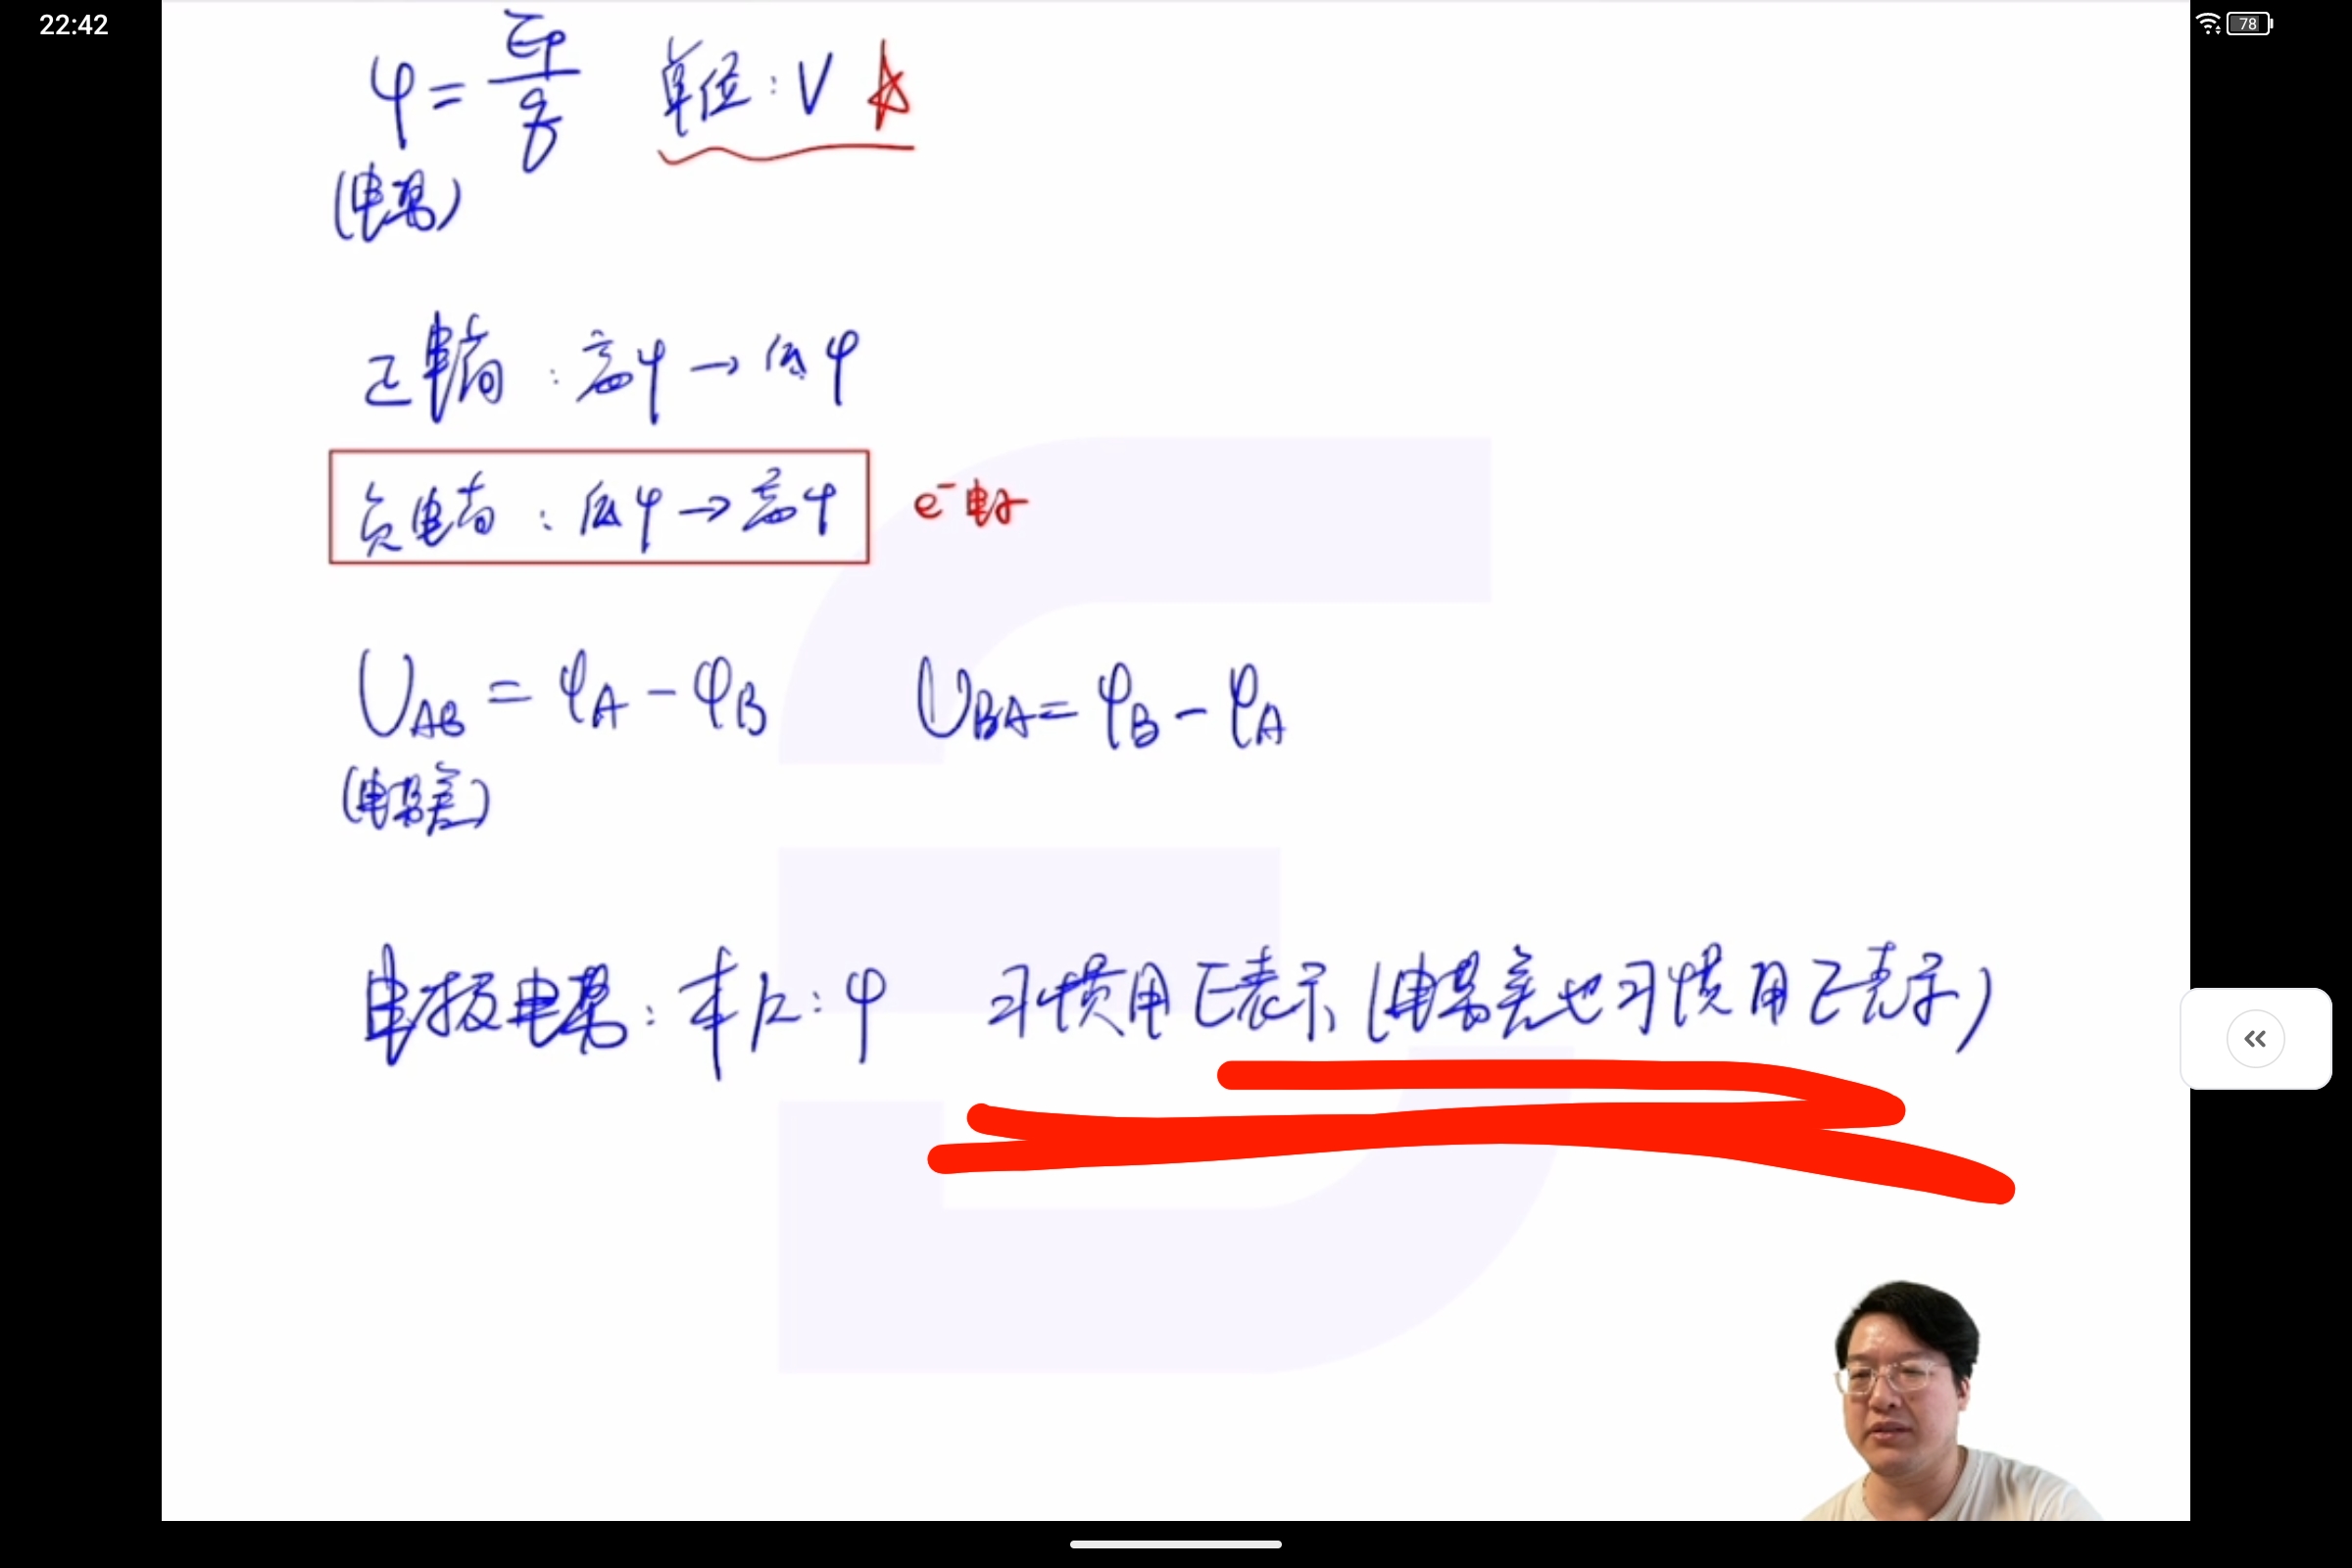 22:42
78
φ = Ep/q 单位:V
(电势)
正电荷:高φ→低φ
负电荷:低φ→高φ e⁻电子
U_AB = φ_A - φ_B U_BA = φ_B - φ_A
(电势差)
电极电势:本应:φ 习惯用E表示(电势差也习惯用E表示)